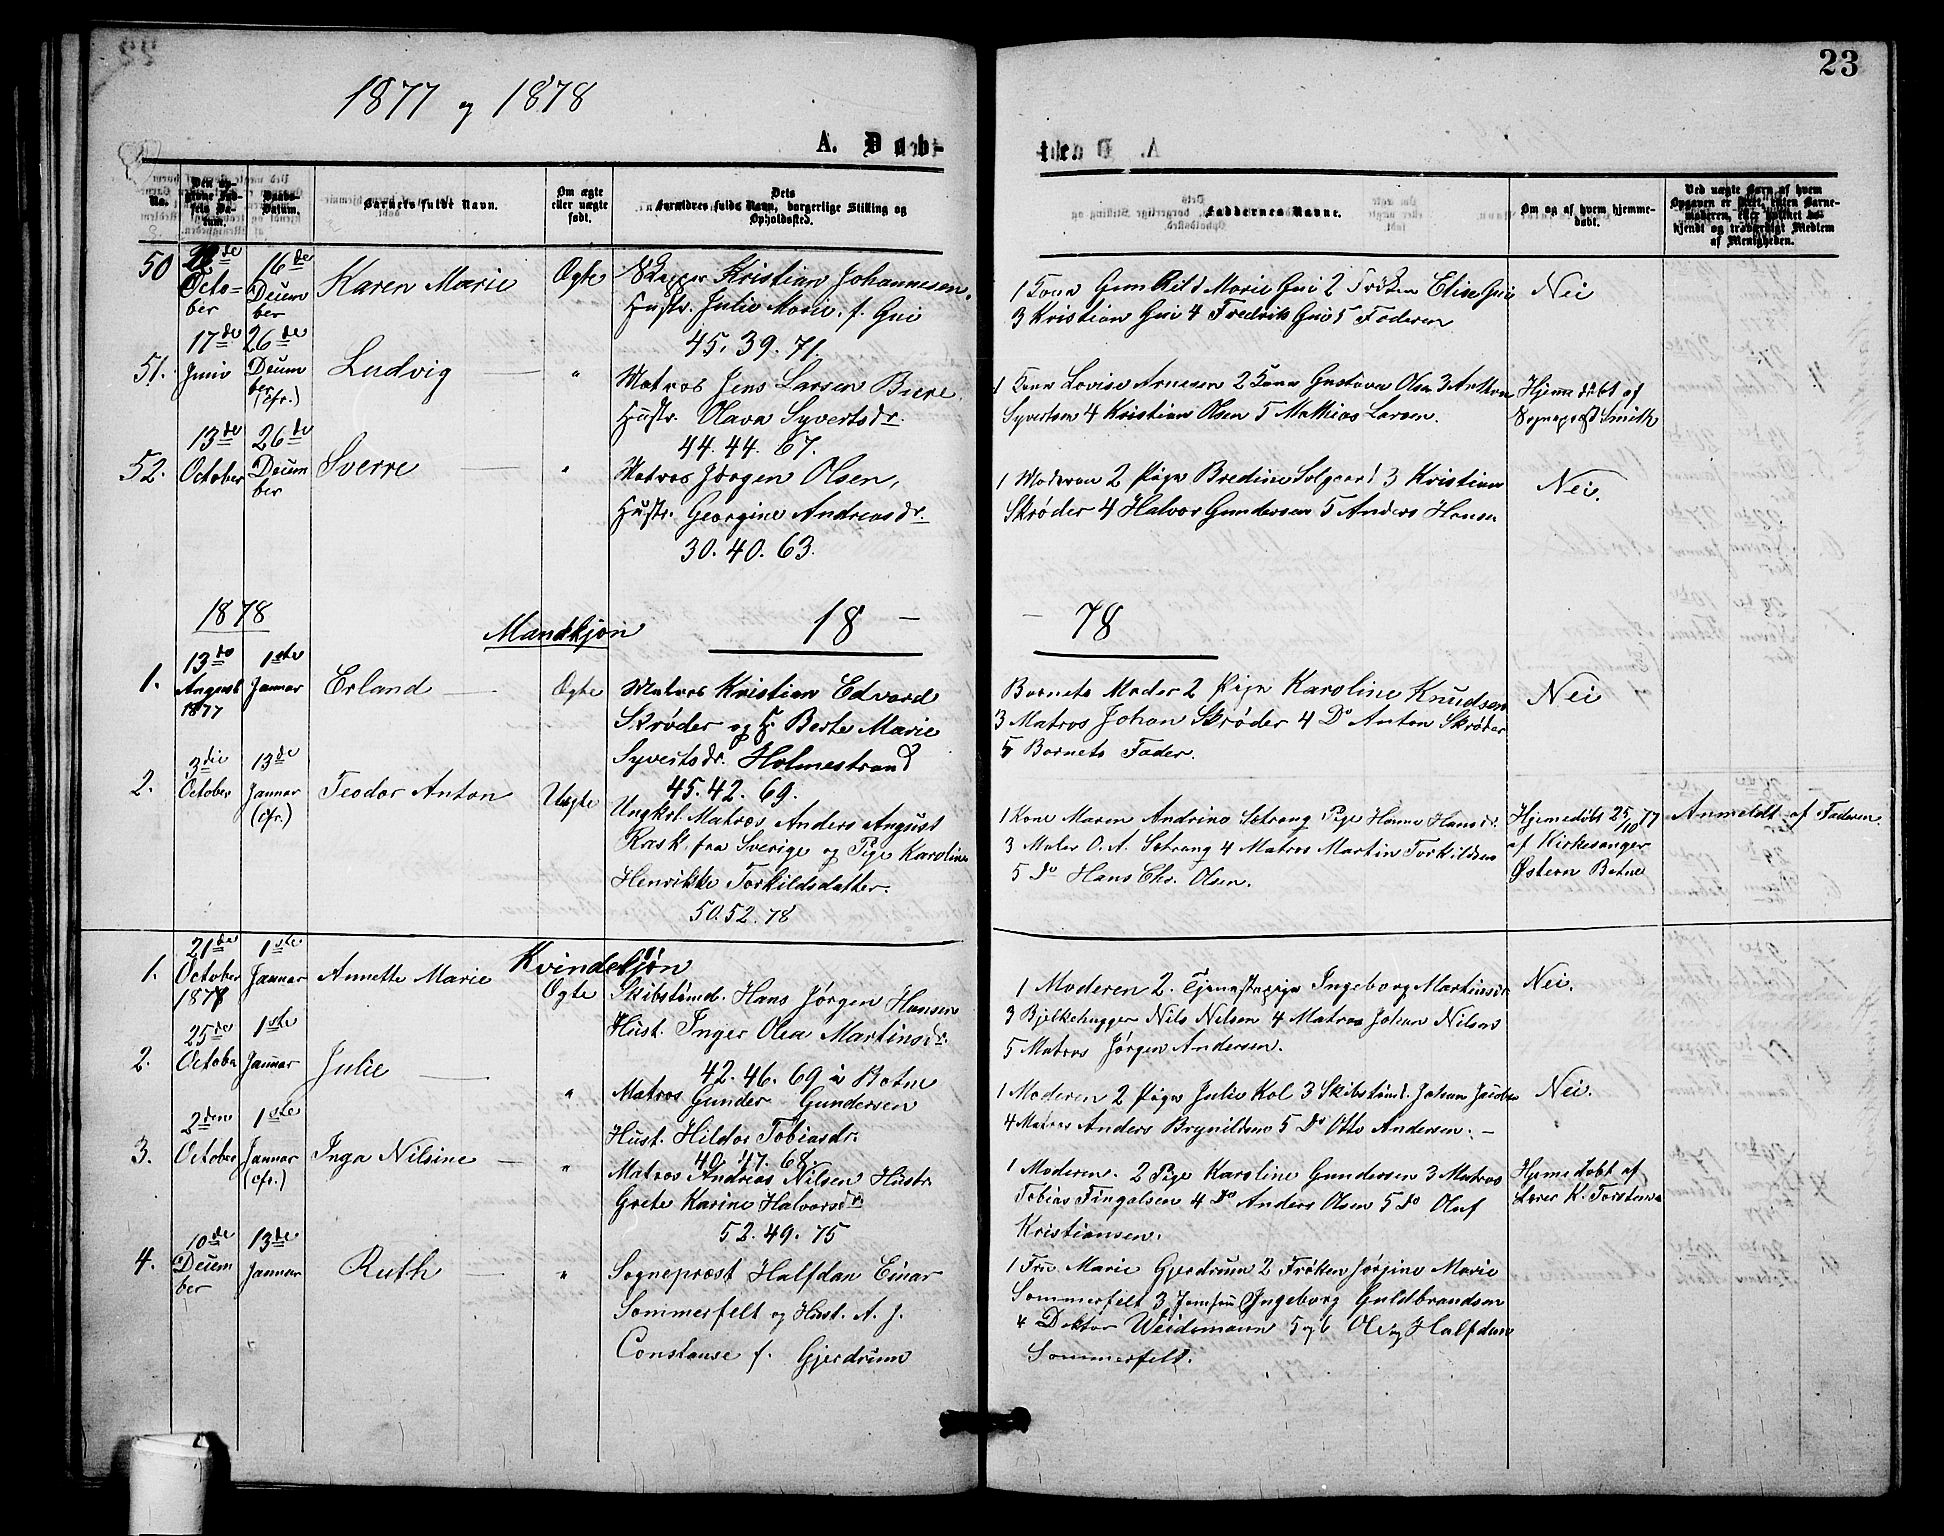 1877 og 1878
23
A. Døb-
te.
No.
Den opgivne Fødsels Datum.
Daabs-Datum.
Barnets fulde Navn.
Om ægte eller uægte født.
Dets Forældres fulde Navn, borgerlige Stilling og Opholdssted.
Faddernes Navne.
Om og af hvem hjemmedøbt.
Ved uægte Barn af hvem Opgaven er skeet, enten Barnemoderen, eller hvilket bekjendt og troværdigt Medlem af Menigheden.
50
October
16de Decem
ber
Karen Marie
Ægte
Skipper Kristian Johannesen,
Hustr. Julie Marie f. Gui
45. 39. 71.
1 Kone Gunhild Marie Gui 2 Frøken Elise Gui
3 Kristian Gui 4 Fredrik Gui 5 Faderen
Nei
51.
17de Junio
26de Decem
ber
(cfr.)
Ludvig
"
Matros Jens Larsen Biere
Hustr. Olava Syvertsdr.
44. 44. 67.
1 Kone Lovise Arnesen 2 Kone Gustava Olsen 3 Anthon
Syvertsen 4 Kristian Olsen 5 Mathias Larsen.
Hjemmedøbt af
Sognepræst Smith
52.
13de October
26de Decem
ber
Sverre
"
Matros Jørgen Olsen,
Hustr. Georgine Andreasdr.
30. 40. 63.
1 Moderen 2 Pige Bredine Solgaard 3 Kristian
Skrøder 4 Halvor Gundersen 5 Anders Hansen
Nei.
1878
Mandkjøn
18 — — 78
1.
13de August
1877
1ste Januar
Erland
Ægte
Matros Kristian Edvard
Skrøder og H. Berte Marie
Syvertsdr. Holmestrand
45. 42. 69.
Barnets Moder 2 Pige Karoline Knudsen
3 Matros Johan Skrøder 4 Do Anton Skrøder
5 Barnets Fader.
Nei
2.
3die October
13de Januar
(cfr.)
Teodor Anton
Uægte
Ungkrl. Matros Anders August
Rask fra Sverige og Pige Karoline
Henrikke Torkildsdatter.
50. 52. 78
1 Kone Maren Andrine Setrang Pige Hanne Hansdr.
3 Maler O. A. Setrang 4 Matros Martin Torkildsen
5 Do Hans Chr. Olsen.
Hjemedøbt 25/10 77
af Kirkesanger
Østern Botne
Anmeldt af Faderen.
Kvindekjøn
1.
21de October
1877
1ste Januar
Annette Marie
Ægte
Skibstømd. Hans Jørgen Hansen
Hust. Inger Olea Martinsdr.
42. 46. 69 i Botne
1 Moderen 2. Tjenestepige Ingeborg Martinsdr
3 Bjelkehugger Nils Nilsen 4 Matros Johan Nilsen
5 Matros Jørgen Andersen.
Nei.
2.
25de October
1ste Januar
Julie
"
Matros Gunder Gundersen
Hust. Hilda Tobiasdr.
40. 47. 68
1 Moderen 2 Pige Julie Kol 3 Skibstømd. Johan
4 Matros Anders Brynildsen 5 Do Otto Andersen. —
Nei.
3.
2den October
1ste Januar
(cfr.)
Inga Nilsine
"
Matros Andreas Nilsen Hustr.
Grete Karine Halvorsdr
52. 49. 75
1 Moderen. 2 Pige Karoline Gundersen 3 Matros
Tobias Fingalsen 4 Do Anders Olsen 5 Do Oluf
Kristiansen.
Hjemedøbt af
Lærer K. Torstensen
4.
10de Decem
ber
13de Januar
Ruth
"
Sogneprest Halfdan Einar
Sommerfelt og Hust. A. J.
Constanse f. Gjerdrum
1 Fru Marie Gjerdrum 2 Frøken Jørgine Marie
Sommerfelt 3 Jomfru Ingeborg Guldbrandsen
4 Doktor Weidemann 5 og 6 Ole og Halfdan
Sommerfelt.